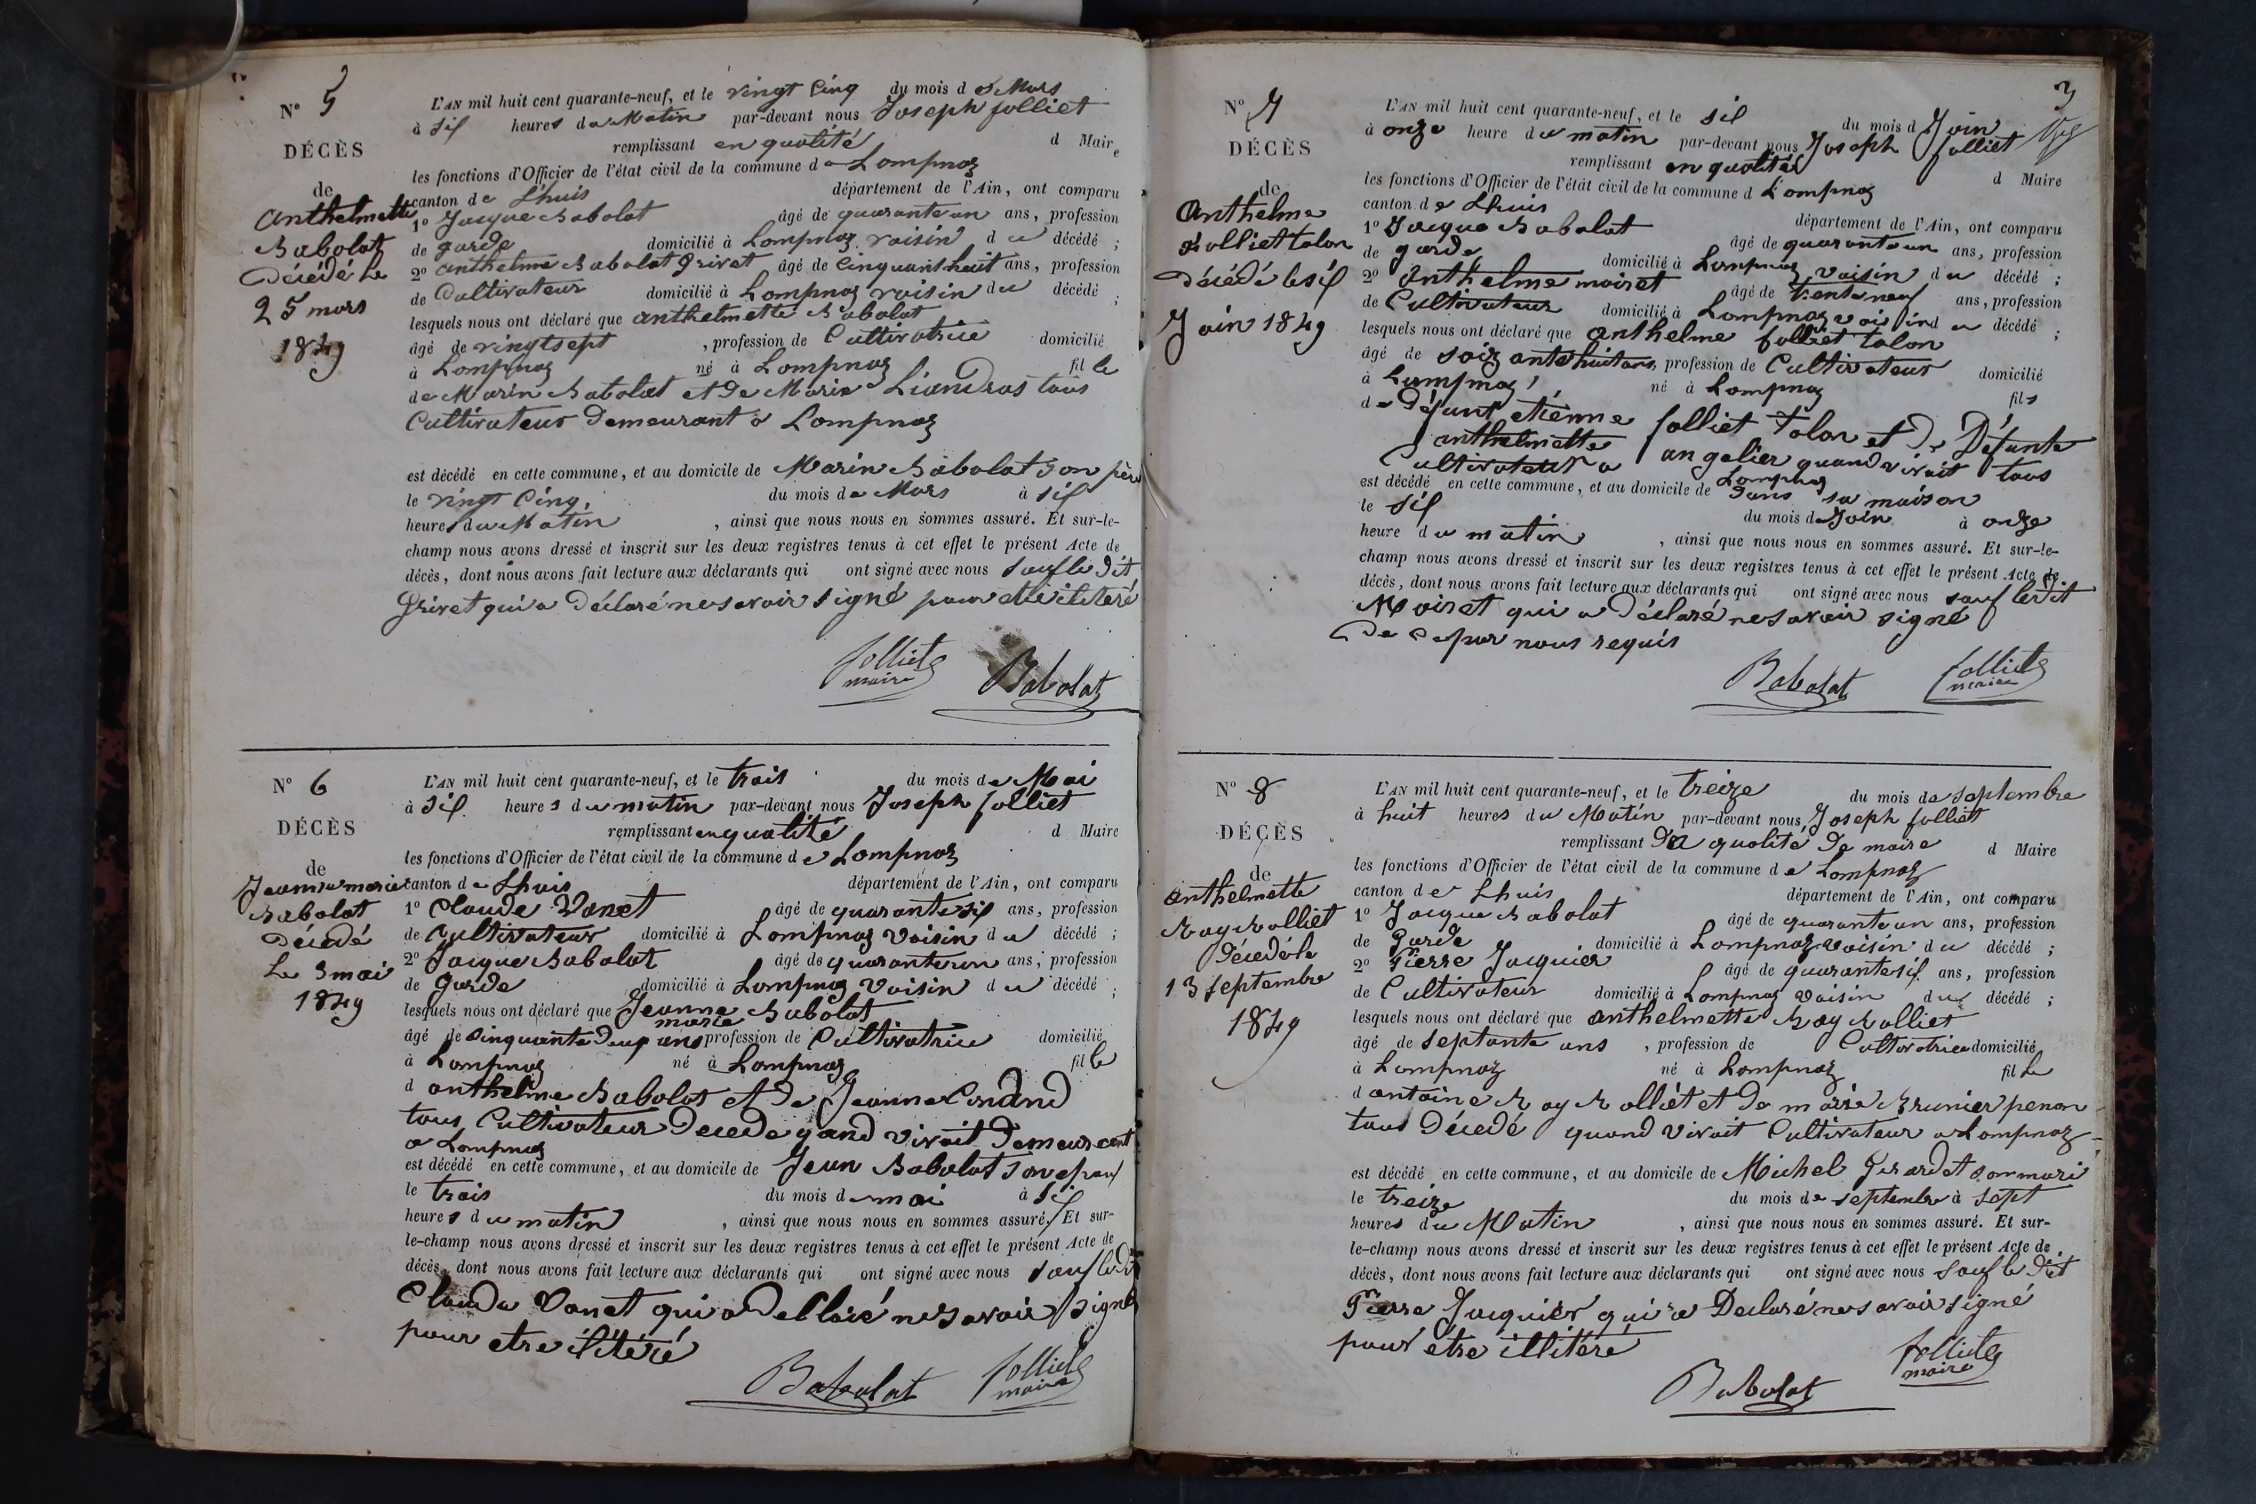 N° 5
DÉCÈS
de
anthelmette
Babolat
Décédé le
25 mars
1849
L'AN mil huit cent quarante-neuf, et le vingt Cinq du mois d e Mars
à Sif heures du Matin par-devant nous Joseph folliet
remplissant en qualité d Maire
les fonctions d'Officier de l'état civil de la commune de Lompnaz
canton de Lhuis département de l'Ain, ont comparu
1° Jacque Babolat âgé de quarante un ans, profession
de garde domicilié à Lompnaz voisin d u décédé ;
2° anthelme Babolat Grivet âgé de Cinquant huit ans, profession
de Cultivateur domicilié à Lompnaz voisin du décédé ;
lesquels nous ont déclaré que anthelmette Babolat
âgé de vingtsept , profession de Cultivatrice domicilié
à Lompnaz né à Lompnaz fil le
de Marin Babolat et De Marie Liandras tous
Cultivateur Demeurant a Lompnaz
est décédé en cette commune, et au domicile de Marin Babolat son père
le vingt Cinq, du mois de Mars à Sif
heures du Matin , ainsi que nous nous en sommes assuré. Et sur-le-
champ nous avons dressé et inscrit sur les deux registres tenus à cet effet le présent Acte de
décès, dont nous avons fait lecture aux déclarants qui ont signé avec nous sauf le Dit
Grivet qui a Déclaré ne savoir signé pour etre iliteré
folliet
maire
Babolat
N° 6
DÉCÈS
de
Jeanne marie
Babolat
Décedé
Le 3 mai
1849
L'AN mil huit cent quarante-neuf, et le trois du mois de Mai
à Sif heures du matin par-devant nous Joseph folliet
remplissant en qualité d Maire
les fonctions d'Officier de l'état civil de la commune d e Lompnaz
canton de Lhuis département de l'Ain, ont comparu
1° Claude Vanet âgé de quarante Sif ans, profession
de Cultivateur domicilié à Lompnaz voisin d u décédé ;
2° Jacque Babolat âgé de quaranteun ans, profession
de Garde domicilié à Lompnaz voisin d u décédé ;
lesquels nous ont déclaré que Jeanne Babolat
marie
âgé de Cinquante Deup ans profession de Cultivatrice domicilié
à Lompnaz né à Lompnaz fil le
d anthelme Babolat et De Jeanne Condand
tous Cultivateur Decede qand vivait Demeurcent
a Lompnaz
est décédé en cette commune, et au domicile de Jean Babolat son epouf
le trois du mois de mai à Sif
heures du matin , ainsi que nous nous en sommes assuré. Et sur-
le-champ nous avons dressé et inscrit sur les deux registres tenus à cet effet le présent Acte de
décès, dont nous avons fait lecture aux déclarants qui ont signé avec nous sauf le Dit
Claude Vanet qui a Dellaré ne savoir signé
pour etre ilitéré
Babolat
folliet
maire
3
N° 7
DÉCÈS
de
Anthelme
folliet talon
Décédé le sif
Join 1849
L'AN mil huit cent quarante-neuf, et le sif du mois d Join
à onze heure du matin par-devant nous Joseph folliet
remplissant en qualité d Maire
les fonctions d'Officier de l'état civil de la commune d Lompnaz
canton d e Lhuis département de l'Ain, ont comparu
1° Jacque Babolat âgé de quarante un ans, profession
de garde domicilié à Lompnaz voisin d u décédé ;
2° Anthelme moiret âgé de trente neuf ans, profession
de Cultivateur domicilié à Lompnaz voisin d u décédé ;
lesquels nous ont déclaré que anthelme folliet talon
âgé de soizante huit ans, profession de Cultivateur domicilié
à Lompnaz né à Lompnaz fils
d e Défunt etienne folliet talon et De Défunte
anthelmette angelier quand vivait tous
Cultivateur a Lompnaz
est décédé en cette commune, et au domicile de Dans sa maison
le sif du mois de Join à onze
heure du matin , ainsi que nous nous en sommes assuré. Et sur-le-
champ nous avons dressé et inscrit sur les deux registres tenus à cet effet le présent Acte de
décès, dont nous avons fait lecture aux déclarants qui ont signé avec nous sauf le dit
Moiret qui a Déclaré ne savoir signé
De ce par nous requis
Babolat
folliet
maire
N° 8
DÉCÈS
de
anthelmette
Ray Rolliet
Décedé le
13 septembre
1849
L'AN mil huit cent quarante-neuf, et le treize du mois de septembre
à huit heures du Matin par-devant nous Joseph folliet
remplissant Da qualité De maire d Maire
les fonctions d'Officier de l'état civil de la commune d e Lompnaz
canton d e Lhuis département de l'Ain, ont comparu
1° Jacque Babolat âgé de quarante un ans, profession
de Garde domicilié à Lompnaz voisin du décédé ;
2° Pierre Jacquier âgé de quarante sif ans, profession
de Cultivateur domicilié à Lompnaz voisin du décédé ;
lesquels nous ont déclaré que anthelmette Ray Rolliet
âgé de septante ans , profession de Cultivatrice domicilié
à Lompnaz né à Lompnaz fil le
d antoine Ray Rolliet et De marie Brunier penon
tous Décedé quand vivait Cultivateur a Lompnaz
est décédé en cette commune, et au domicile de Michel Girardet son mari
le treize du mois de septembre à sept
heures du Matin , ainsi que nous nous en sommes assuré. Et sur-
le-champ nous avons dressé et inscrit sur les deux registres tenus à cet effet le présent Acte de
décès, dont nous avons fait lecture aux déclarants qui ont signé avec nous sauf le Dit
Pierre Jacquier qui a Declaré ne savoir signé
pour étre illitéré
Babolat
folliet
maire